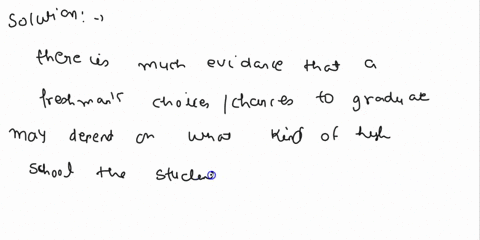 Solution:→
there is much evidence that a
freshman's choices/chances to graduate
may depend on what kind of high
school the studen